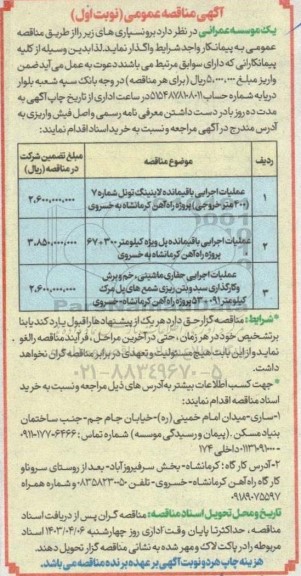 آگهی مناقصه عمومی (نوبت اول)
یک موسسه عمرانی در نظر دارد برونسپاری های زیر را از طریق مناقصه
عمومی به پیمانکار واجد شرایط واگذار نماید. لذا بدین وسیله از کلیه
پیمانکارانی که دارای سوابق مرتبط می باشند دعوت به عمل می آید ضمن
واریز مبلغ ۵,۰۰۰,۰۰۰ ریال (برای هر مناقصه) در وجه بانک سپه شعبه بلوار
دریا به شماره حساب در ساعت اداری از تاریخ چاپ آگهی به
مدت ده روز با در دست داشتن معرفی نامه رسمی و اصل فیش واریزی به
آدرس مندرج در آگهی مراجعه و نسبت به خرید اسناد اقدام نمایند:
ردیف موضوع مناقصه مبلغ تضمین شرکت در مناقصه (ریال)
۱ عملیات اجرایی باقیمانده لاینینگ تونل شماره ۷ (۲۰۰ متر خروجی) پروژه راه آهن کرمانشاه به خسروی ۲,۶۰۰,۰۰۰,۰۰۰
۲ عملیات اجرایی باقیمانده پل ویژه کیلومتر ۳۰۰+۶۷ پروژه راه آهن کرمانشاه به خسروی ۳,۸۵۰,۰۰۰,۰۰۰
۳ عملیات اجرایی حفاری ماشینی، خم و برش و کارگذاری سبد و بتن ریزی شمع های پل مرک کیلومتر ۰۹۱+۵۳ پروژه راه آهن کرمانشاه-خسروی ۲,۶۰۰,۰۰۰,۰۰۰
*شرایط: مناقصه گزار حق دارد هر یک از پیشنهادها را قبول یا رد کند یا بنا
بر تشخیص خود در هر زمان، حتی در آخرین مراحل، فرآیند مناقصه را لغو
نماید و از این بابت هیچ مسئولیت و تعهدی در برابر مناقصه گران نخواهد
داشت.
۰۲۱-۸۸۳۴۹۶۷۰-۵
*جهت کسب اطلاعات بیشتر به آدرس های ذیل مراجعه و نسبت به خرید
اسناد مناقصه اقدام نمایند:
۱-ساری-میدان امام خمینی (ره)-خیابان جام جم- جنب ساختمان
بنیاد مسکن. (پیمان و رسیدگی موسسه) شماره تماس: ۰۹۱۱۰۱۷۷۰۶۴۶۶
داخلی ۱۷۴
۲-آدرس کار گاه: کرمانشاه- بخش سرفیروزآباد- بعد از روستای سروناو
کار گاه راه آهن کرمانشاه-خسروی- تلفن و شماره همراه
تاریخ و محل تحویل اسناد مناقصه: مناقصه گران پس از دریافت اسناد
مناقصه، حداکثر تا پایان وقت اداری روز چهارشنبه ۱۴۰۳/۰۴/۰۶ اسناد
مربوطه را در پاکت لاک و مهر شده به نشانی مناقصه گزار تحویل دهند.
هزینه چاپ هر دو نوبت آگهی بر عهده برنده مناقصه می باشد.